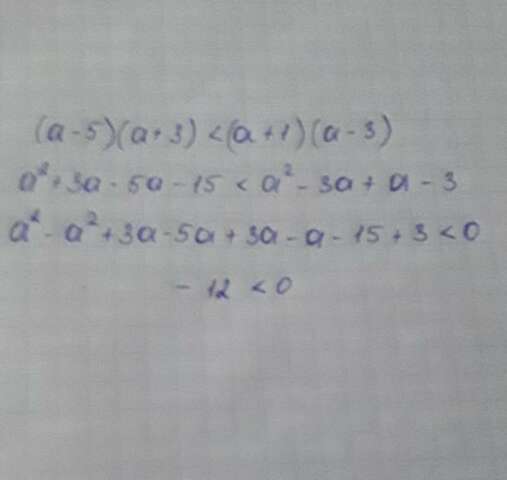 (a-5)(a+3) < (a+1)(a-3)
a²+3a-5a-15 < a²-3a+a-3
a²-a²+3a-5a+3a-a-15+3<0
-12 <0